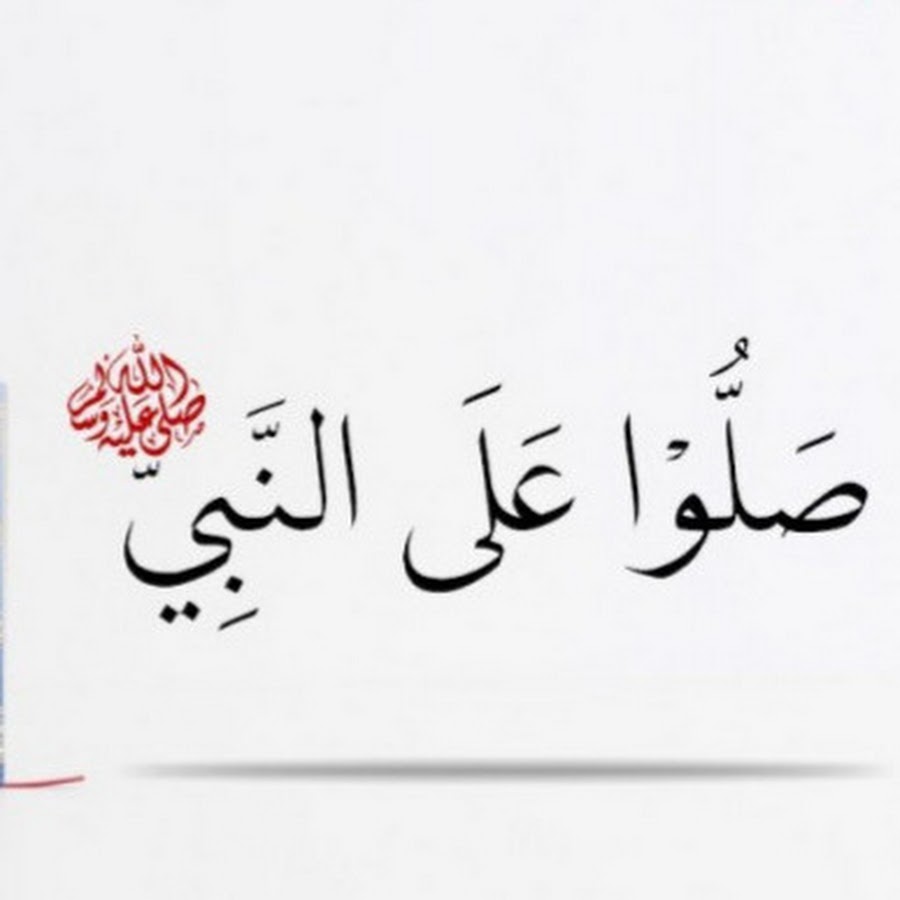 صَلُّوْا عَلَى النَّبِيّ ﷺ